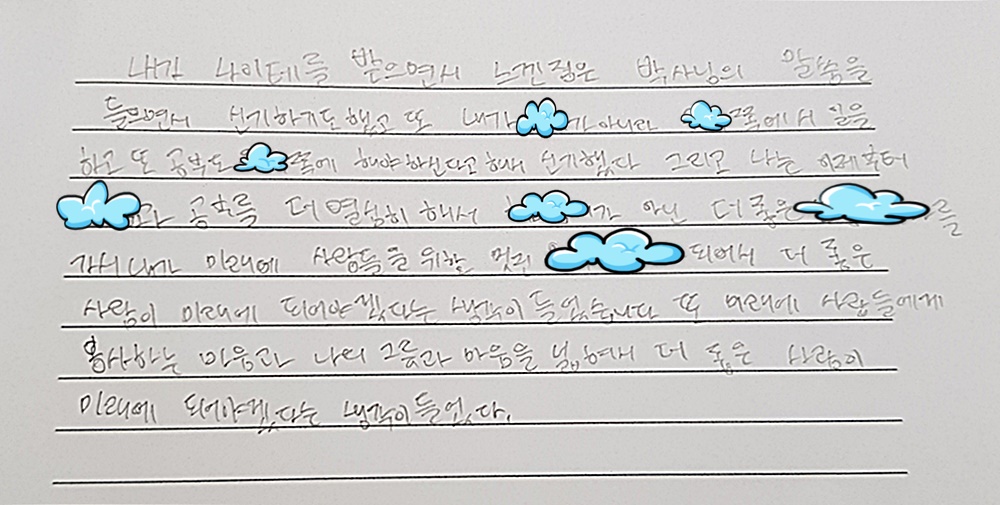 내가 나이테를 받으면서 느낀점은 박사님의 말씀을
들으면서 신기하기도 했고 또 내가 가 아니라 쪽에서 일을
하고 또 공부도 쪽에 해야하신다고 해서 신기했다 그리고 나는 이제부터
과 공부를 더 열심히 해서 가 아닌 더 좋은 를
가서 내가 미래에 사람들을 위한 멋진 되어서 더 좋은
사람이 미래에 되어야겠다는 생각이 들었습니다 또 미래에 사람들에게
봉사하는 마음과 나의 그릇과 마음을 넓혀서 더 좋은 사람이
미래에 되어야겠다는 생각이 들었다.